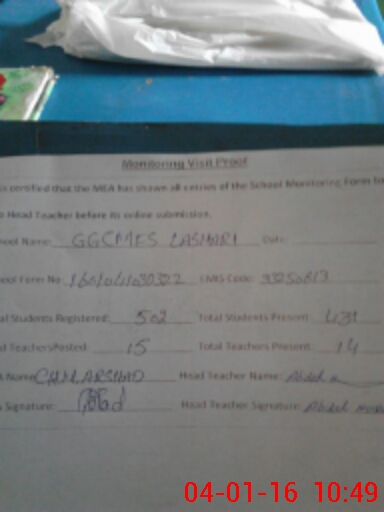 Monitoring Visit Proof
certified that the MEA has shown all entries of the School Monitoring Form to
Head Teacher before its online submission.
ool Name: GGCMES LASHARI Date:
ool Form No EMIS Code:
al Students Registered: 502 Total Students Present: 431
al TeachersPosted: 15 Total Teachers Present: 14
Name Head Teacher Name:
Signature: Head Teacher Signature:
04-01-16 10:49